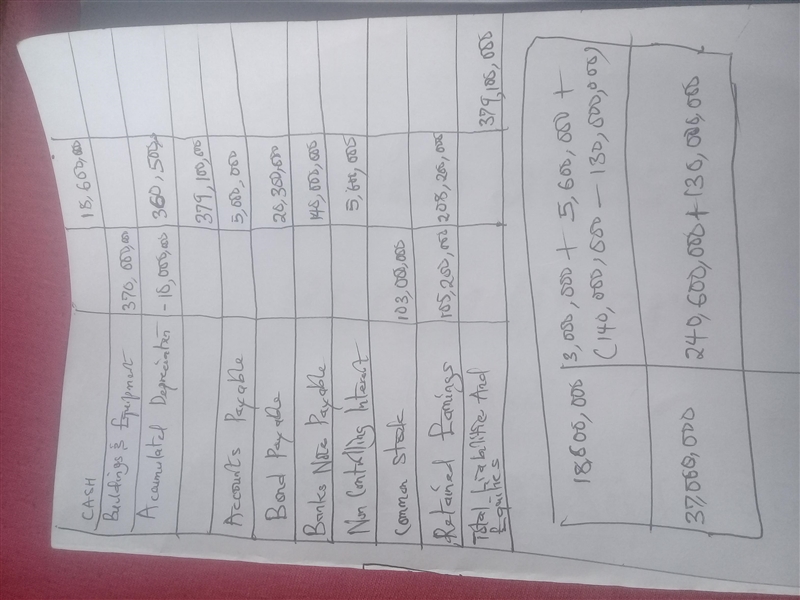 CASH 18,600,000
Buildings & Equipment 370,000,00
Accumulated Depreciation -10,000,00 360,500,
379,100,00
Accounts Payable 5,000,000
Bond Payable 20,300,000
Banks Note Payable 140,000,00
Non Contralling Interest 5,600,000
Common Stock 103,00,000
Retained Earnings 105,200,00 208,200,000
Total Liabilities And
Equities 379,100,000
18,600,000 3,000,000 + 5,600,000 +
(140,000,000 - 130,000,000)
37,000,000 240,600,000 + 130,000,000